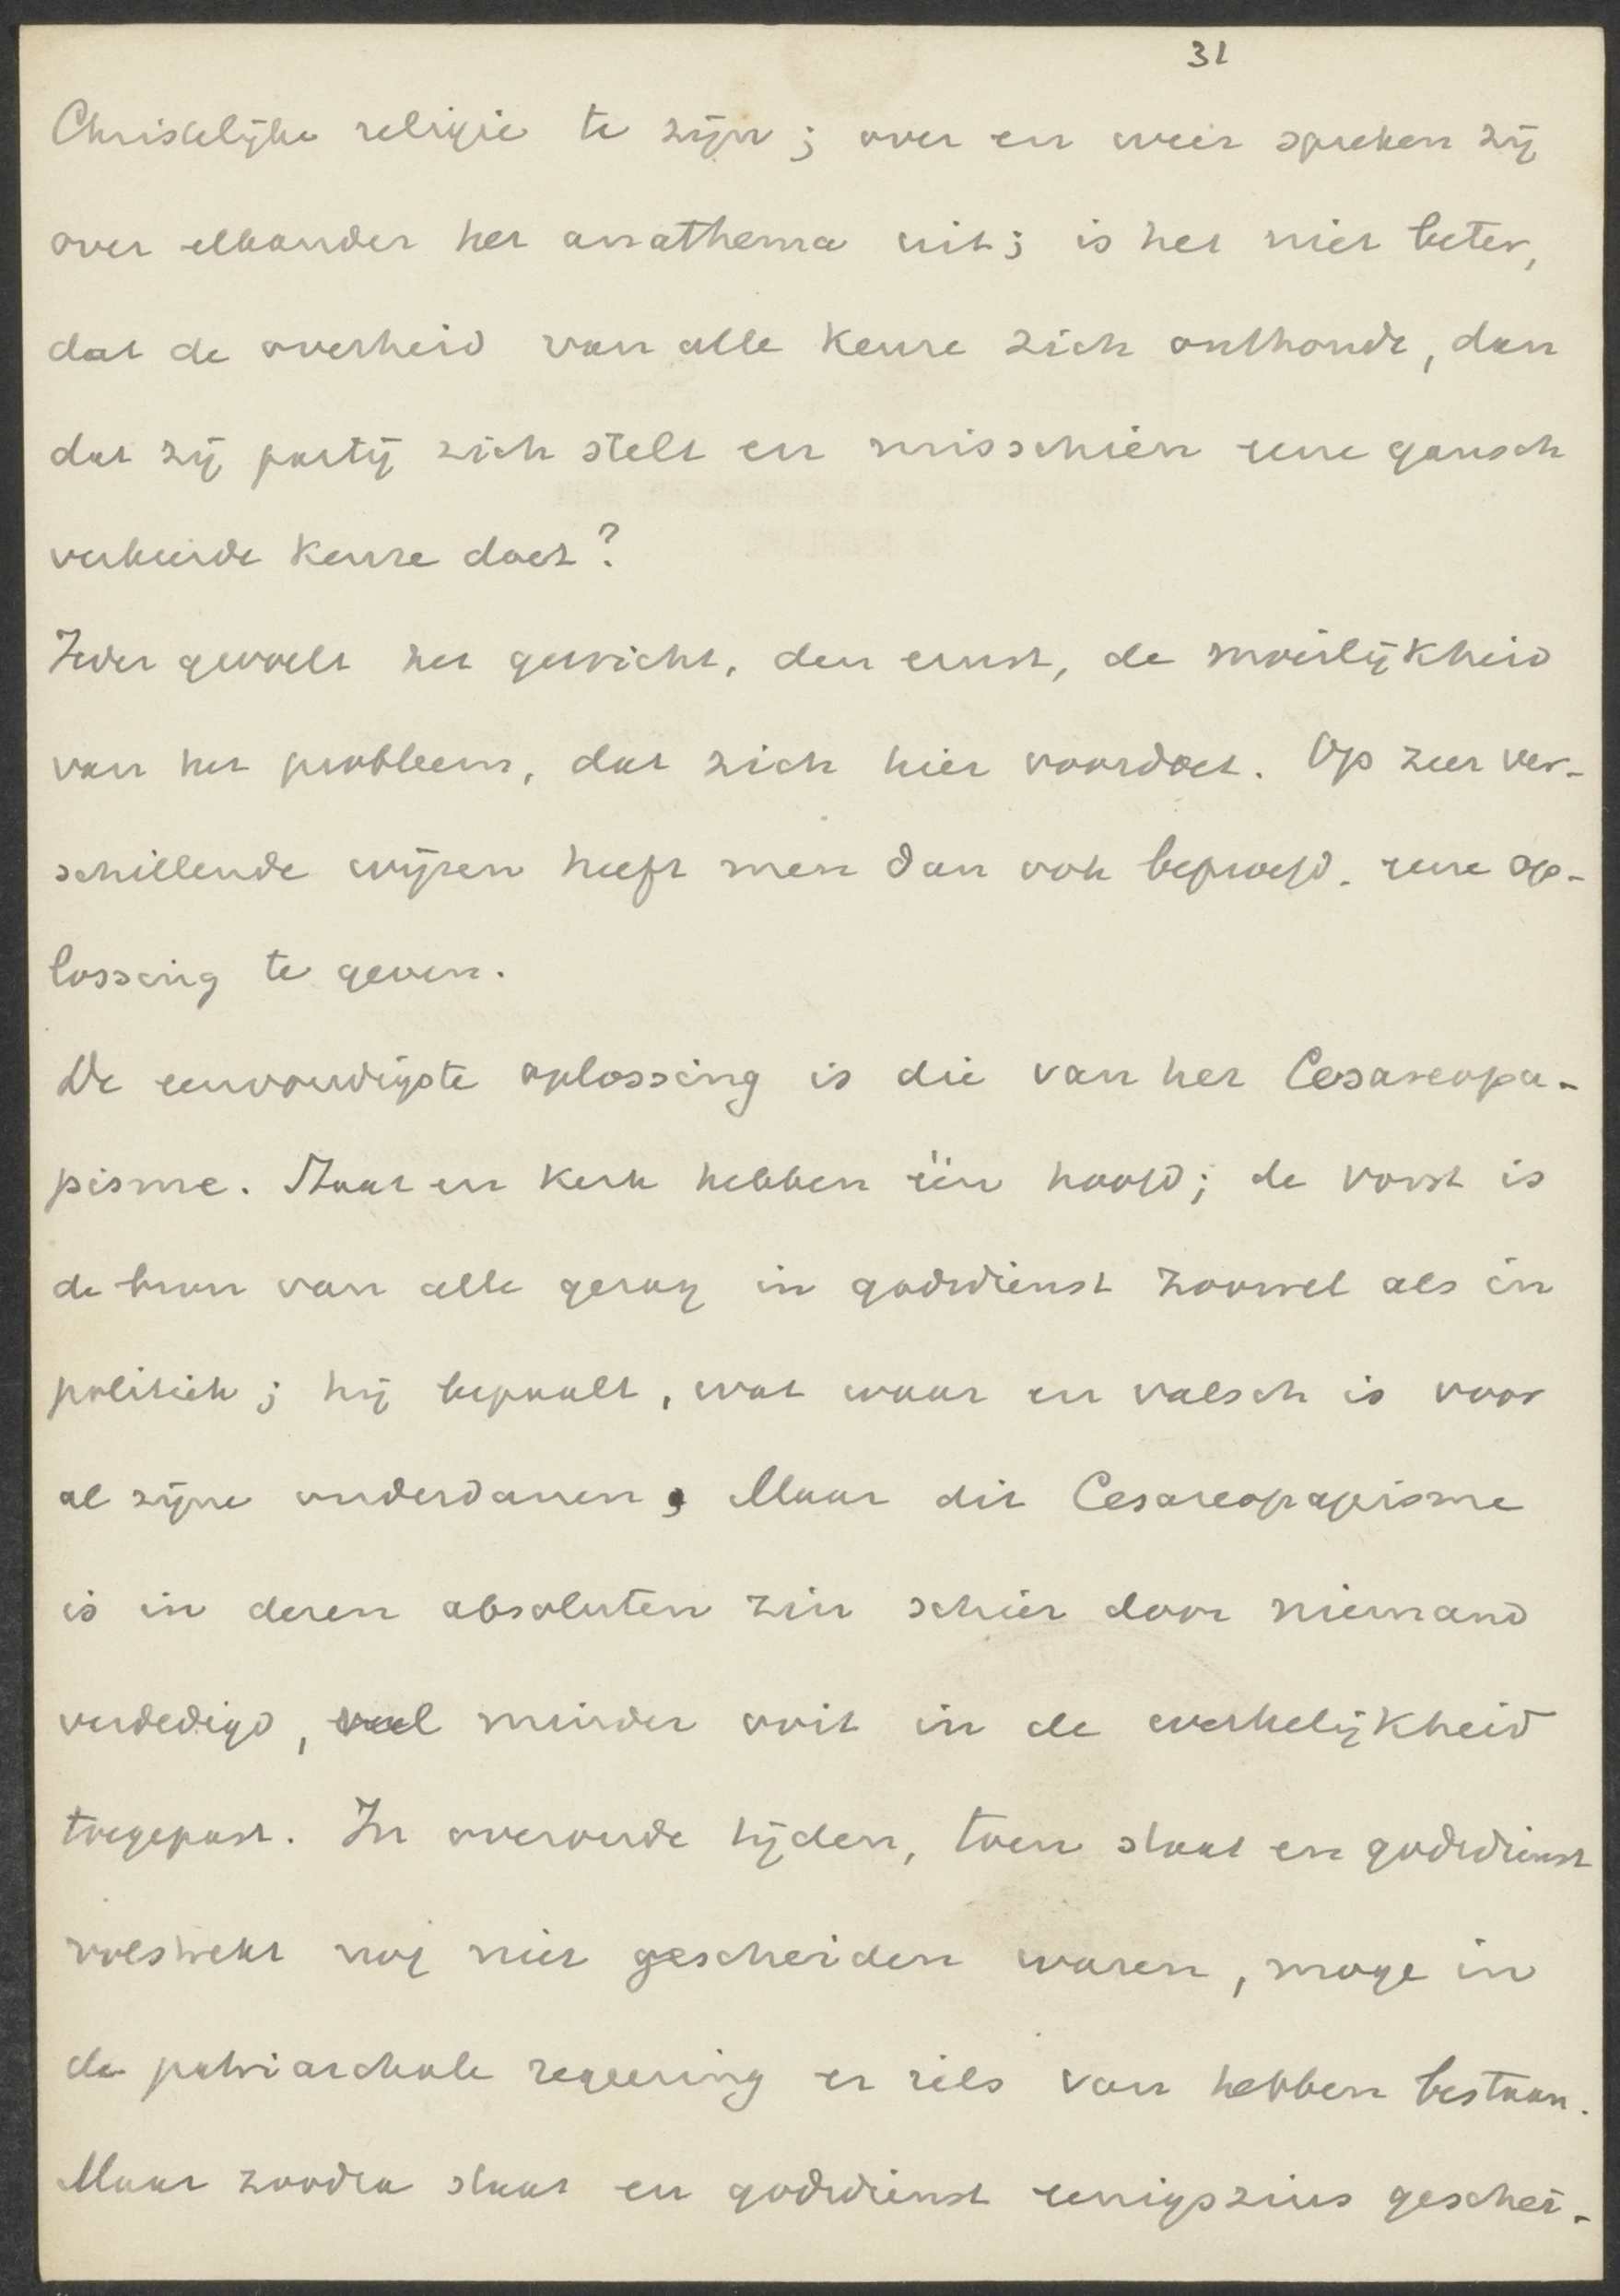 31
Christelijke religie te zijn; over en weer spreken zij
over elkander het anathema uit; is het niet beter,
dat de overheid van alle keuze zich onthoude, dan
dat zij partij zich stelt en misschien eene gansch
verkeerde keuze doet?
Ieder gevoelt het gewicht, den ernst, de moeilijkheid
van het probleem, dat zich hier voordoet. Op zeer ver-
schillende wijzen heeft men dan ook beproefd. eene op-
lossing te geven.
De eenvoudigste oplossing is die van het Cesareopa-
pisme. Staat en kerk hebben één hoofd; de vorst is
de bron van alle gezag in godsdienst zoowel als in
politiek; hij bepaalt, wat waar en valsch is voor
al zijne onderdanen; Maar dit Cesareopapisme
is in dezen absoluten zin schier door niemand
verdedigd, veel minder ooit in de werkelijkheid
toegepast. In overoude tijden, toen staat en godsdienst
volstrekt nog niet gescheiden waren, moge in
de patriarchale regeering er iets van hebben bestaan.
Maar zoodra staat en godsdienst eenigszins geschei-